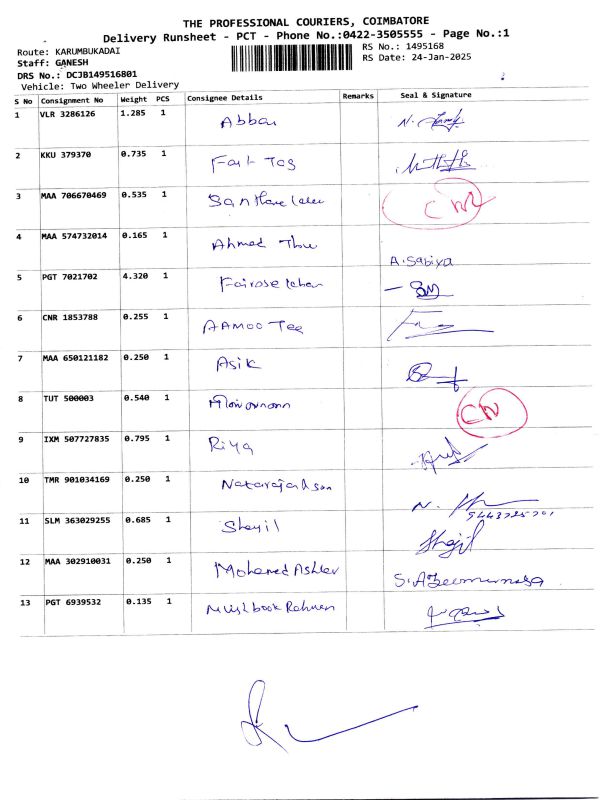 THE PROFESSIONAL COURIERS, COIMBATORE
Delivery Runsheet - PCT - Phone No.:0422-3505555 - Page No.:1
Route: KARUMBUKADAI RS No.: 1495168
Staff: GANESH RS Date: 24-Jan-2025
DRS No.: DCJB149516801
Vehicle: Two Wheeler Delivery
S No Consignment No Weight PCS Consignee Details Remarks Seal & Signature
1 VLR 3286126 1.285 1 Abbas
2 KKU 379370 0.735 1 Fast Tag
3 MAA 706670469 0.535 1
4 MAA 574732014 0.165 1 Ahmed A.Sabiya
5 PGT 7021702 4.320 1 Fairose khan
6 CNR 1853788 0.255 1 AAMOO Tee
7 MAA 650121182 0.250 1 Asik
8 TUT 500003 0.540 1 CN
9 IXM 507727835 0.795 1 Riya
10 TMR 901034169 0.250 1 Natarajan N.
11 SLM 363029255 0.685 1 Shajil Shajil
12 MAA 302910031 0.250 1 Mohamed
13 PGT 6939532 0.135 1 Rahman